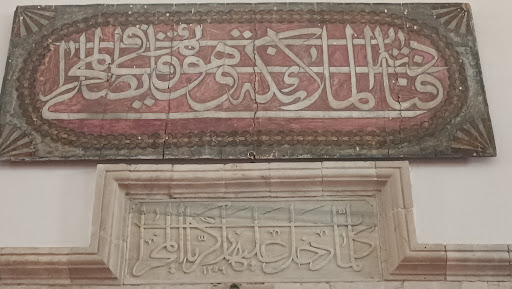 فنادته الملائكة وهو قائم يصلي في المحراب
كلما دخل عليها زكريا المحراب
١٢٤٩